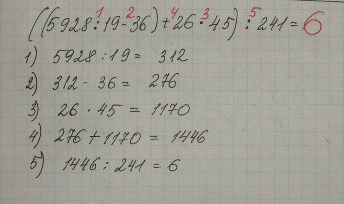 ((5928:19-36)+26·45):241=6
1) 5928:19= 312
2) 312- 36= 276
3) 26·45= 1170
4) 276+1170= 1446
5) 1446:241=6